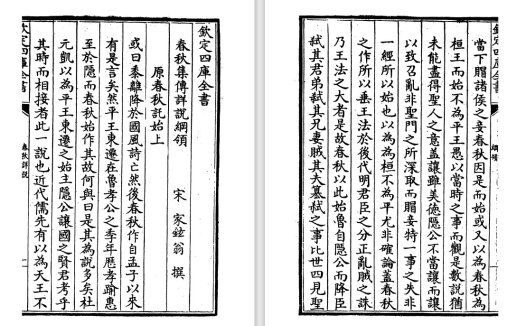 欽定四庫全書
春秋集傳詳說綱領
宋 家鉉翁 撰
原春秋託始上
或曰黍離降於國風詩亡然後春秋作自孟子以來
有是言矣然平王東遷在魯孝公之季年歷孝踰惠
至於隱而春秋始作其故何與曰是其為說多矣杜
元凱以為平王東遷之始主隱公讓國之賢君考乎
其時而相接者此一說也近代儒先有以為天王不
欽定四庫全書
春秋詳說
欽定四庫全書
綱領
當下賵諸侯之妾春秋因是而始或又以為春秋為
桓王而始不為平王愚以當時之事而觀是數說猶
未能盡得聖人之意蓋讓雖美德隱公不當讓而讓
以致召亂非聖門之所深取而賵妾特一事之失非
一經所以始也以為為桓不為平尤非確論蓋春秋
之作所以垂王法於後代明君臣之分正亂賊之誅
乃王法之大者是故春秋以此始魯自隱公而降臣
弑其君弟弑其兄妻賊其夫篡弑之事比世四見聖